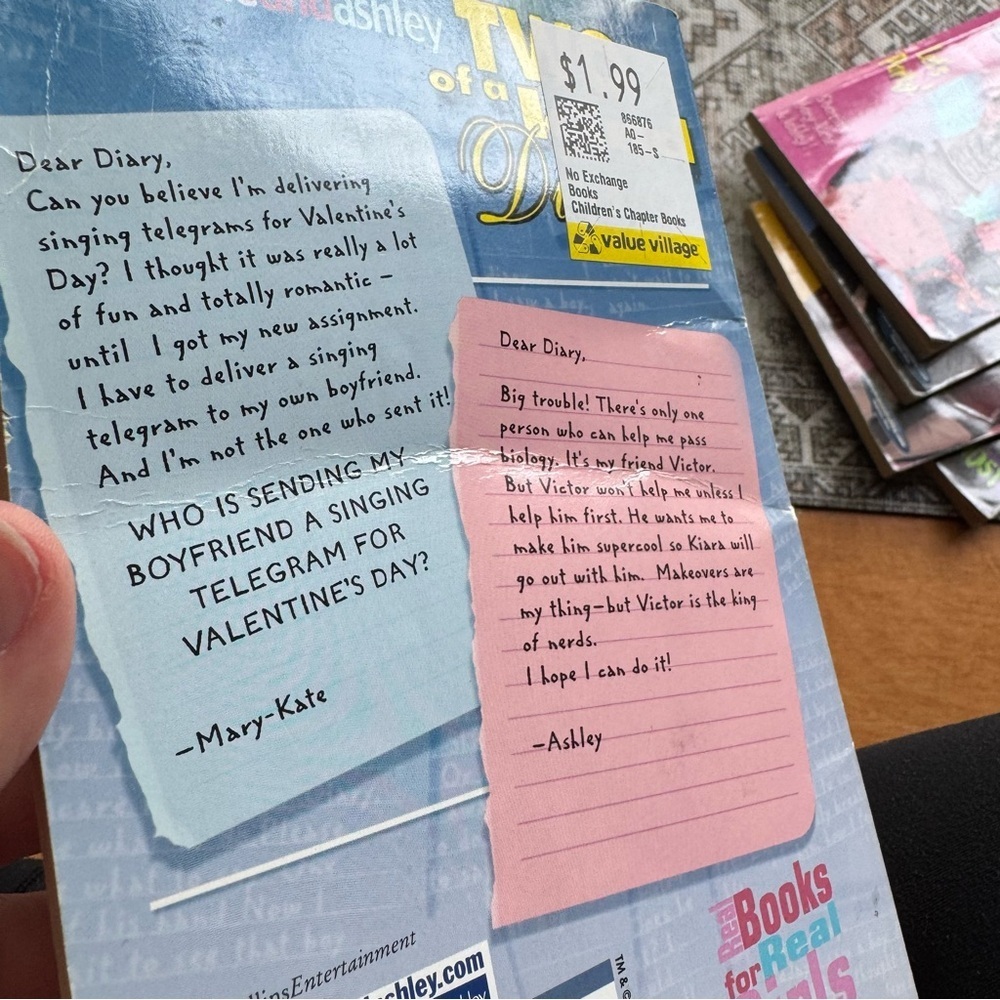 andashley
TWO
of a
$1.99
866876
A0-
185-S
No Exchange
Books
Children's Chapter Books
value village
Dear Diary,
Can you believe I'm delivering
singing telegrams for Valentine's
Day? I thought it was really a lot
of fun and totally romantic –
until I got my new assignment.
I have to deliver a singing
telegram to my own boyfriend.
And I'm not the one who sent it!
WHO IS SENDING MY
BOYFRIEND A SINGING
TELEGRAM FOR
VALENTINE'S DAY?
–Mary-Kate
Dear Diary,
Big trouble! There's only one
person who can help me pass
biology. It's my friend Victor.
But Victor won't help me unless I
help him first. He wants me to
make him supercool so Kiara will
go out with him. Makeovers are
my thing–but Victor is the king
of nerds.
I hope I can do it!
–Ashley
Real
Books
for Real
Girls
Entertainment
ashley.com
TM & ©